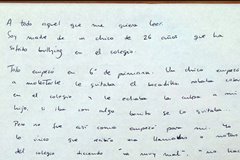 A todo aquel que me quiera leer.
Soy madre de un chico de 26 años que ha
sufrido bullying en el colegio.
Todo empezó en 6º de primaria. Un chico empezó
a molestarle le quitaba el bocadillo, robaba cosas
en el colegio y le echaba la culpa a mi
hijo, si iba con algo bonito se lo quitaba.
Pero no fue así como empezó para mi. Yo
lo único que recibía era llamadas y notas
del colegio diciendo "va muy mal", "no hace